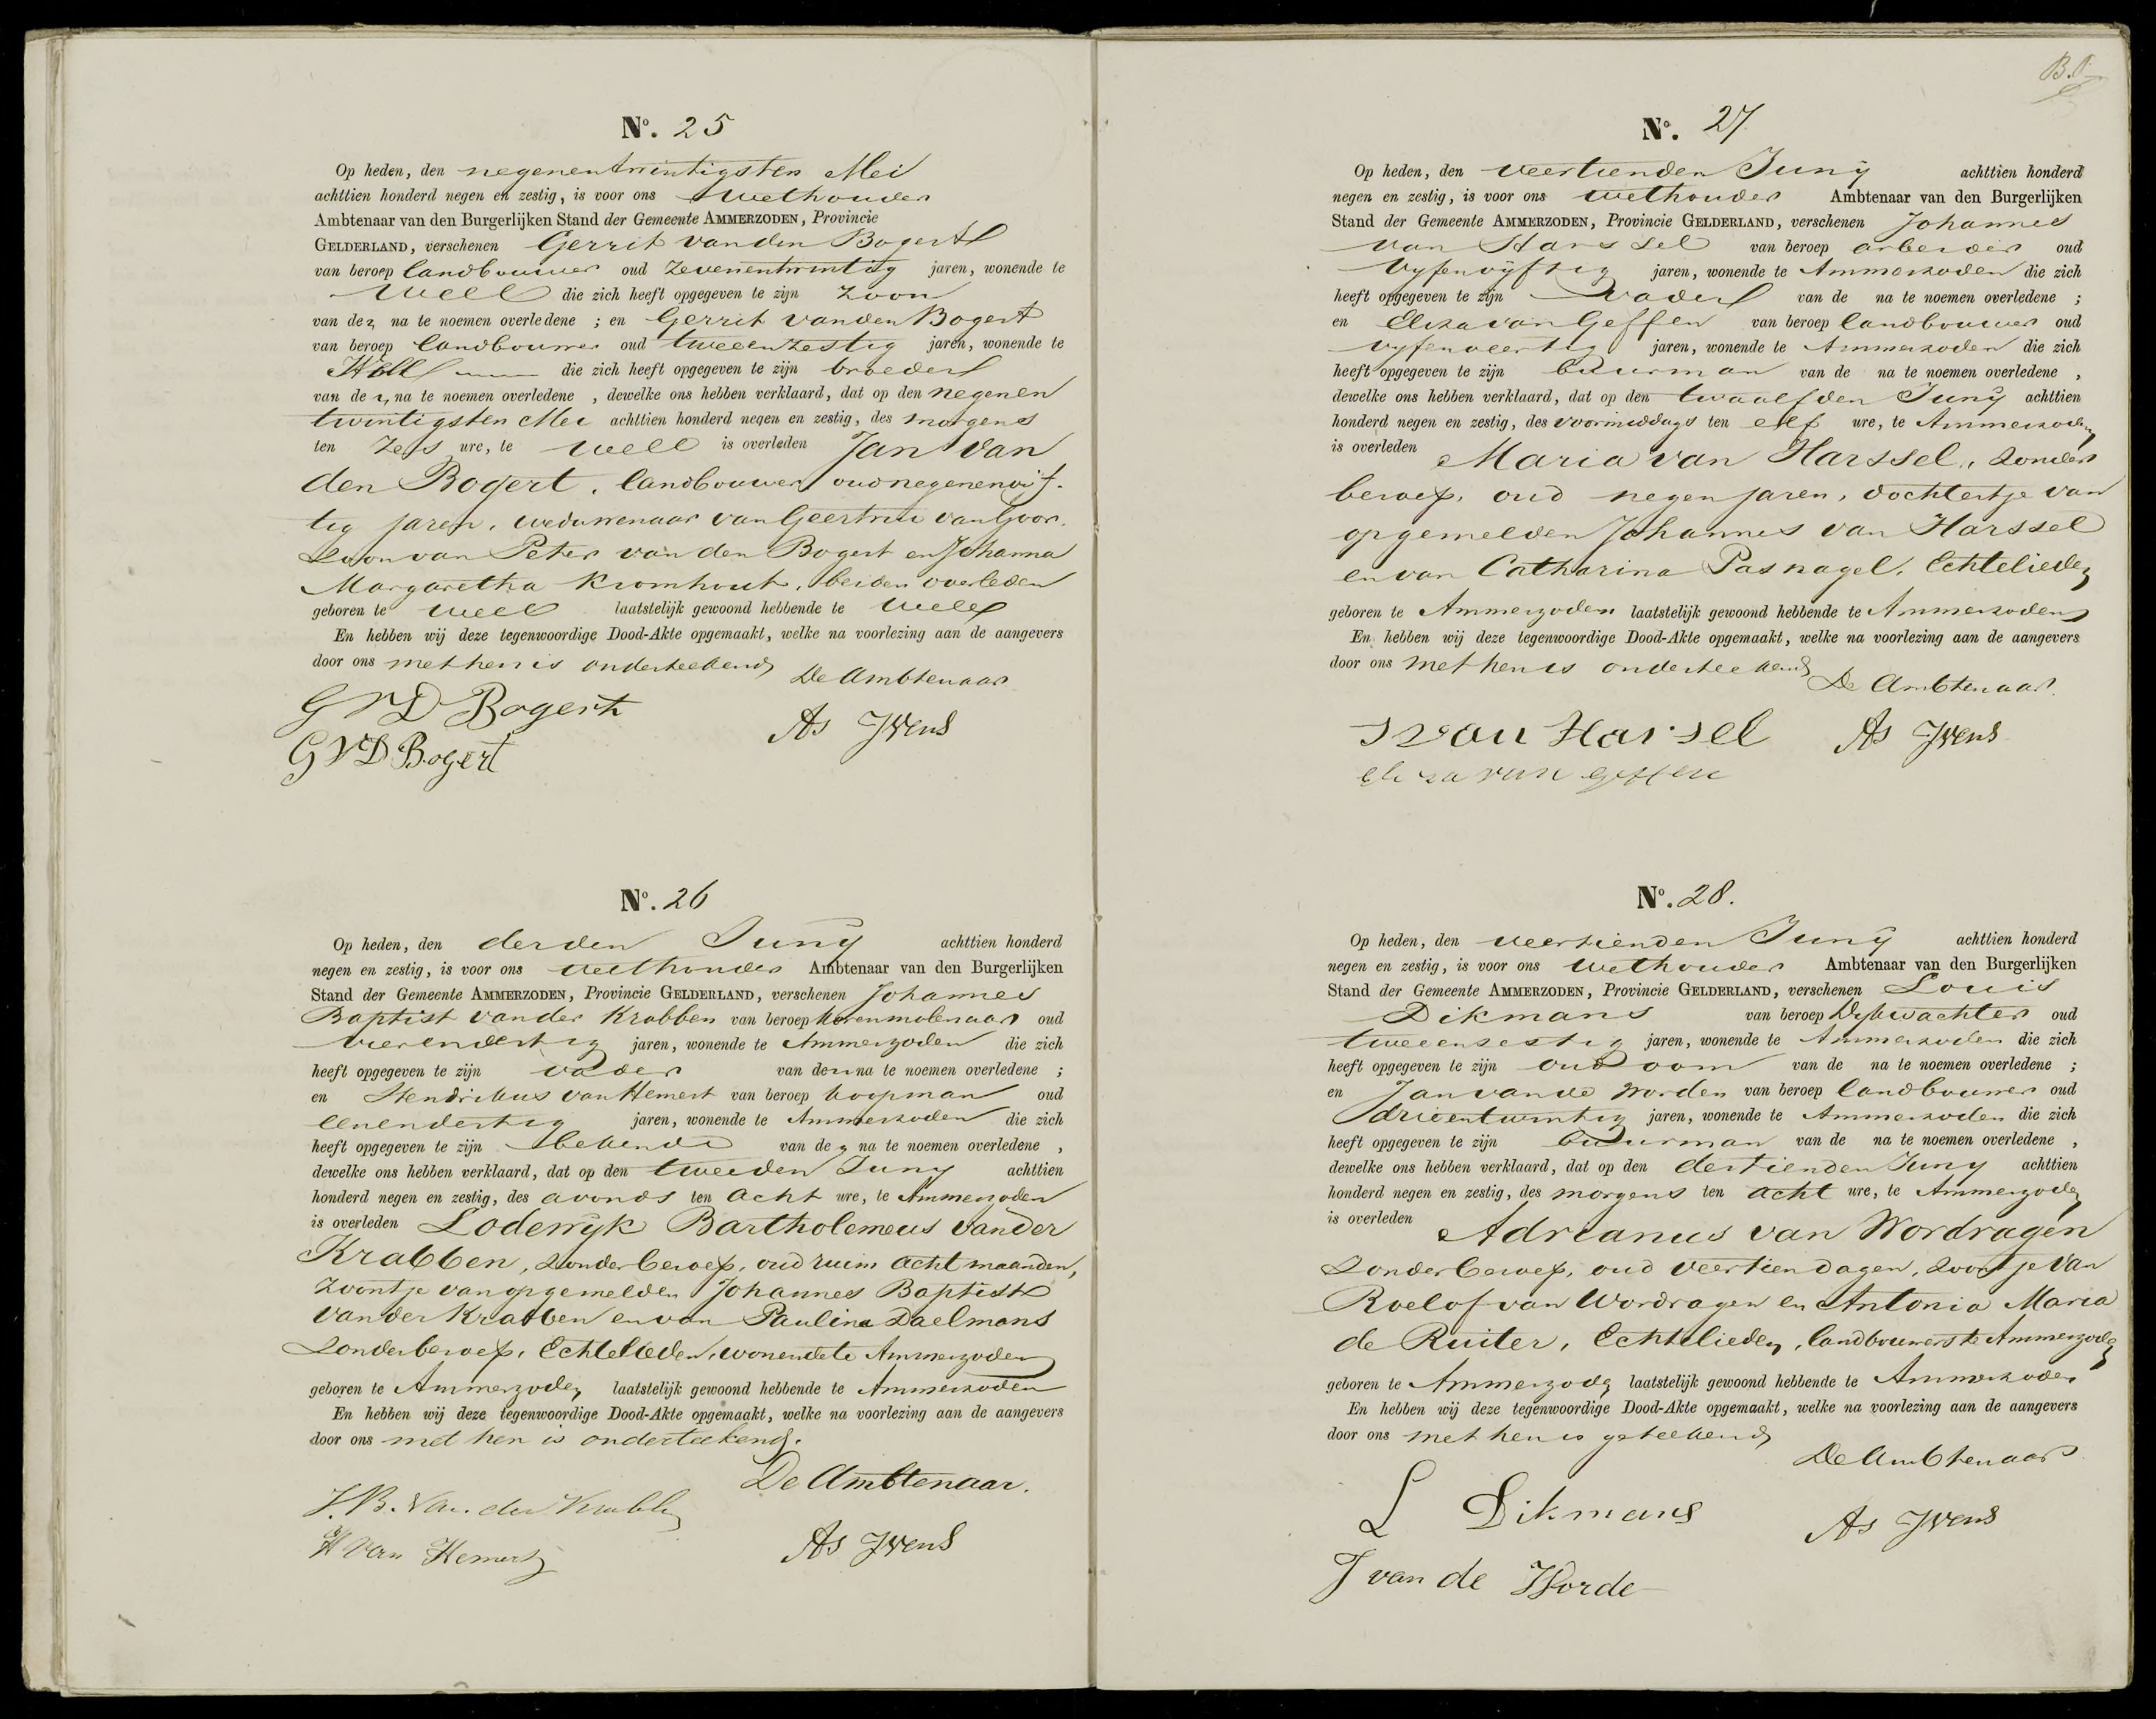 Nº. 25
Op heden, den negenentwintigsten Mei
achttien honderd negen en zestig, is voor ons Wethouder
Ambtenaar van den Burgerlijken Stand der Gemeente AMMERZODEN, Provincie
GELDERLAND, verschenen Gerrit van den Bogert
van beroep landbouwer oud zevenentwintig jaren, wonende te
Well die zich heeft opgegeven te zijn zoon
van den na te noemen overledene ; en Gerrit van den Bogert
van beroep landbouwer oud tweeenzestig jaren, wonende te
Well die zich heeft opgegeven te zijn broeder
van den na te noemen overledene , dewelke ons hebben verklaard, dat op den negenen
twintigsten Mei achttien honderd negen en zestig, des morgens
ten zes ure, te Well is overleden Jan van
den Bogert, landbouwer oud negenenvijf-
tig jaren, weduwenaar van Geertrui van Goor.
Zoon van Peter van den Bogert en Johanna
Margaretha Kromhout, beiden overleden
geboren te Well laatstelijk gewoond hebbende te Well
En hebben wij deze tegenwoordige Dood-Akte opgemaakt, welke na voorlezing aan de aangevers
door ons met hen is onderteekend, De Ambtenaar
G VD Bogert
As Jwens
G VD Bogert
Nº. 26
Op heden, den derden Juny achttien honderd
negen en zestig, is voor ons Wethouder Ambtenaar van den Burgerlijken
Stand der Gemeente AMMERZODEN, Provincie GELDERLAND, verschenen Johannes
Baptist van der Krabben van beroep korenmolenaar oud
vierendertig jaren, wonende te Ammerzoden die zich
heeft opgegeven te zijn vader van den na te noemen overledene ;
en Hendrikus van Hemert van beroep koopman oud
eenendertig jaren, wonende te Ammerzoden die zich
heeft opgegeven te zijn bekende van den na te noemen overledene ,
dewelke ons hebben verklaard, dat op den tweeden Juny achttien
honderd negen en zestig, des avonds ten acht ure, te Ammerzoden
is overleden Lodewyk Bartholomeus van der
Krabben, zonder beroep, oud ruim acht maanden,
zoontje van opgemelden Johannes Baptist
van der Krabben en van Paulina Daelmans
zonder beroep, Echtelieden, wonende te Ammerzoden
geboren te Ammerzoden laatstelijk gewoond hebbende te Ammerzoden
En hebben wij deze tegenwoordige Dood-Akte opgemaakt, welke na voorlezing aan de aangevers
door ons met hen is onderteekend.
De Ambtenaar.
J.B. Van der Krabben
H van Hemert
As Jwens
Nº. 27
Op heden, den veertienden Juny achttien honderd
negen en zestig, is voor ons Wethouder Ambtenaar van den Burgerlijken
Stand der Gemeente AMMERZODEN, Provincie GELDERLAND, verschenen Johannes
van Harssel van beroep arbeider oud
vyfenvyftig jaren, wonende te Ammerzoden die zich
heeft opgegeven te zijn vader van de na te noemen overledene ;
en Eliza van Geffen van beroep landbouwer oud
vyfenveertig jaren, wonende te Ammerzoden die zich
heeft opgegeven te zijn buurman van de na te noemen overledene ,
dewelke ons hebben verklaard, dat op den twaalfden Juny achttien
honderd negen en zestig, des voormiddags ten elf ure, te Ammerzoden
is overleden Maria van Harssel, zonder
beroep, oud negen jaren, dochtertje van
opgemelden Johannes van Harssel
en van Catharina Pasnagel, Echtelieden
geboren te Ammerzoden laatstelijk gewoond hebbende te Ammerzoden
En hebben wij deze tegenwoordige Dood-Akte opgemaakt, welke na voorlezing aan de aangevers
door ons met hen is onderteekend, De Ambtenaar.
J van Harsel
As Jwens
eliza van geffen
Nº. 28.
Op heden, den veertienden Juny achttien honderd
negen en zestig, is voor ons Wethouder Ambtenaar van den Burgerlijken
Stand der Gemeente AMMERZODEN, Provincie GELDERLAND, verschenen Louis
Dikmans van beroep Dykwachter oud
tweeenzestig jaren, wonende te Ammerzoden die zich
heeft opgegeven te zijn oud oom van de na te noemen overledene ;
en Jan van de Worden van beroep landbouwer oud
drieentwintig jaren, wonende te Ammerzoden die zich
heeft opgegeven te zijn buurman van de na te noemen overledene ,
dewelke ons hebben verklaard, dat op den dertienden Juny achttien
honderd negen en zestig, des morgens ten acht ure, te Ammerzoden
is overleden Adrianus van Wordragen
zonder beroep, oud veertien dagen, zoontje van
Roelof van Wordragen en Antonia Maria
de Ruiter, Echtelieden, landbouwers te Ammerzoden
geboren te Ammerzoden laatstelijk gewoond hebbende te Ammerzoden
En hebben wij deze tegenwoordige Dood-Akte opgemaakt, welke na voorlezing aan de aangevers
door ons met hen is geteekend,
De Ambtenaar
L Dikmans
As Jwens
J van de Worde